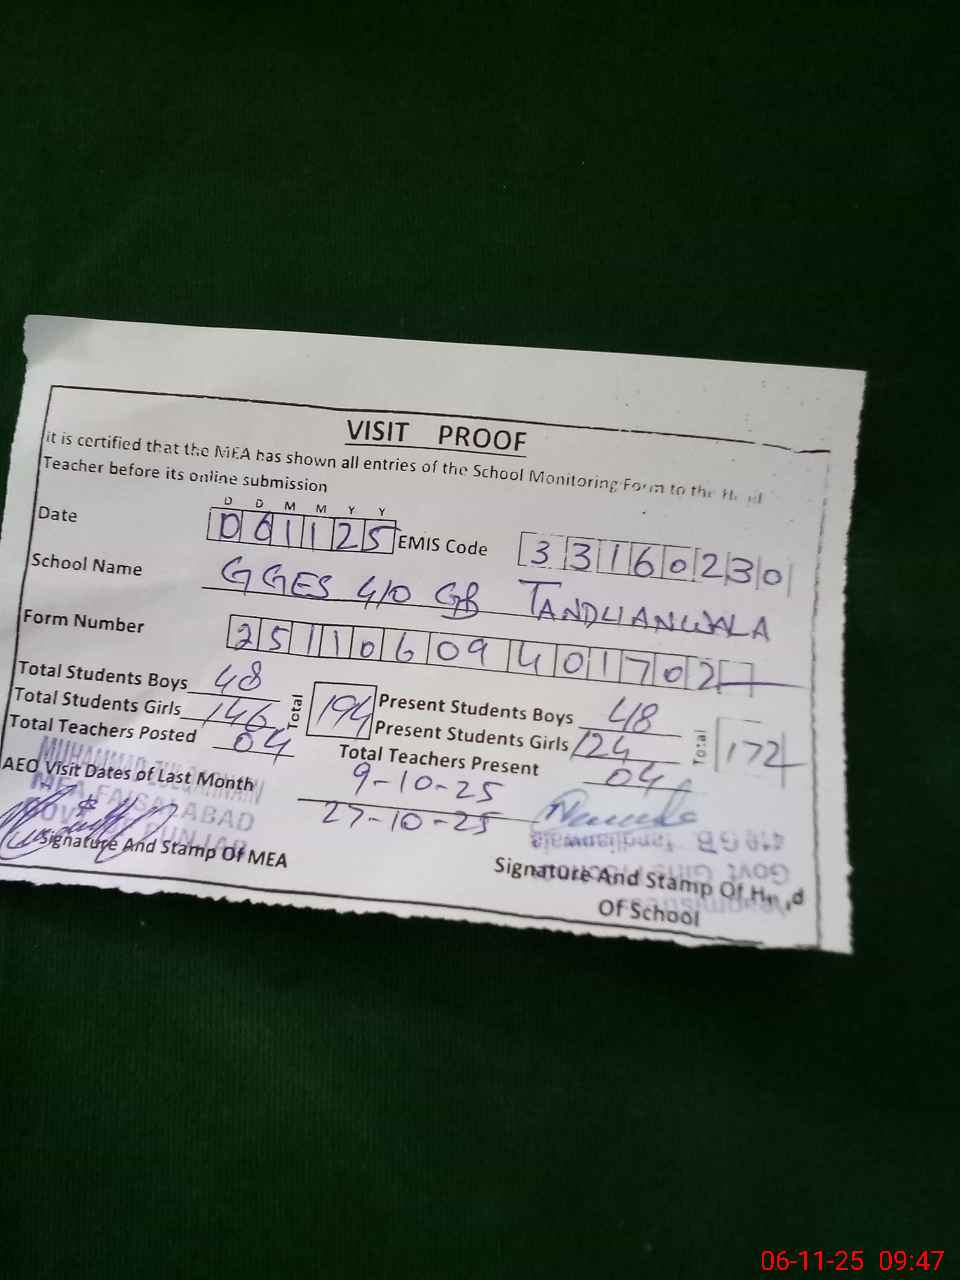 VISIT PROOF
it is certified that the MEA has shown all entries of the School Monitoring Form to the Head
Teacher before its online submission
D D M M Y Y
Date 061125 EMIS Code 33160230
School Name GGES 410 GB TANDLIANWALA
Form Number 2511060940170 2
Total Students Boys 48
Total Students Girls 146
Total 194
Total Teachers Posted 04
Present Students Boys 48
Present Students Girls 124
Total 172
Total Teachers Present 04
AEO Visit Dates of Last Month 9-10-25
27-10-25
MUHAMMAD ZULQARNAIN
MEA FAISALABAD
GOVT OF PUNJAB
Signature And Stamp Of MEA
410 GB Tandlianwala
Govt Girls
Signature And Stamp Of Head
Of School
06-11-25 09:47